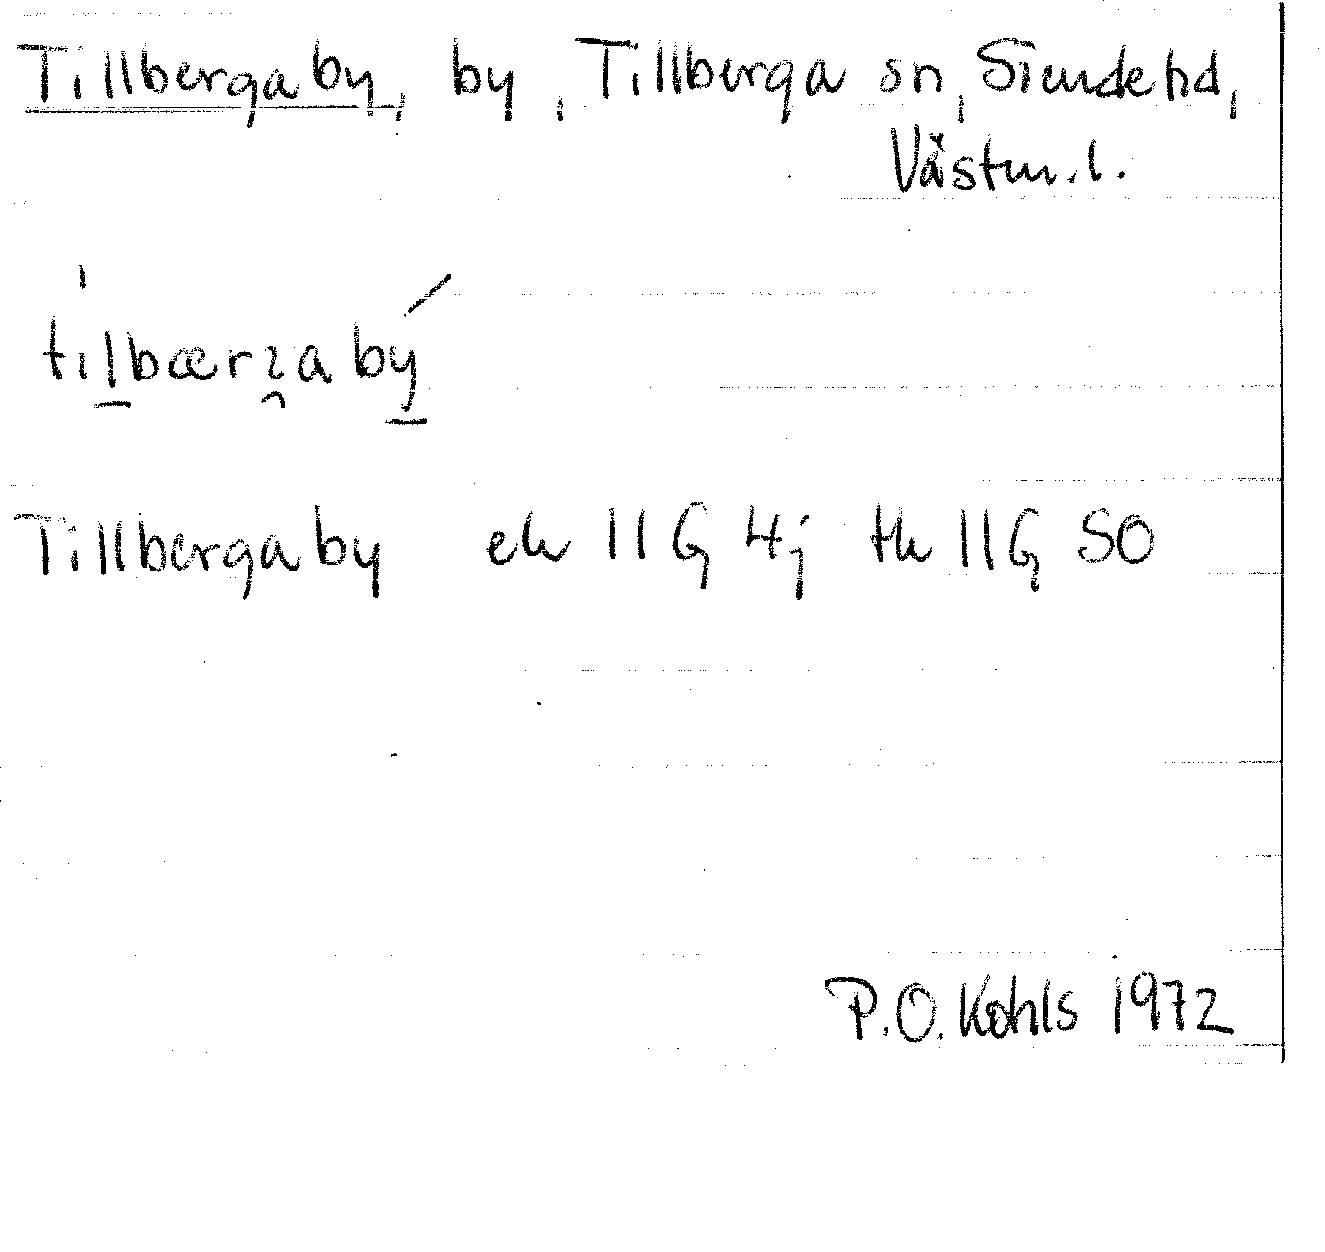 Tillbergaby, by, Tillberga sn, Siende hd,
Västm. l.
tilbærgaby
Tillbergaby ek 11 G 4j tk 11 G SO
P.O. Kohls 1972